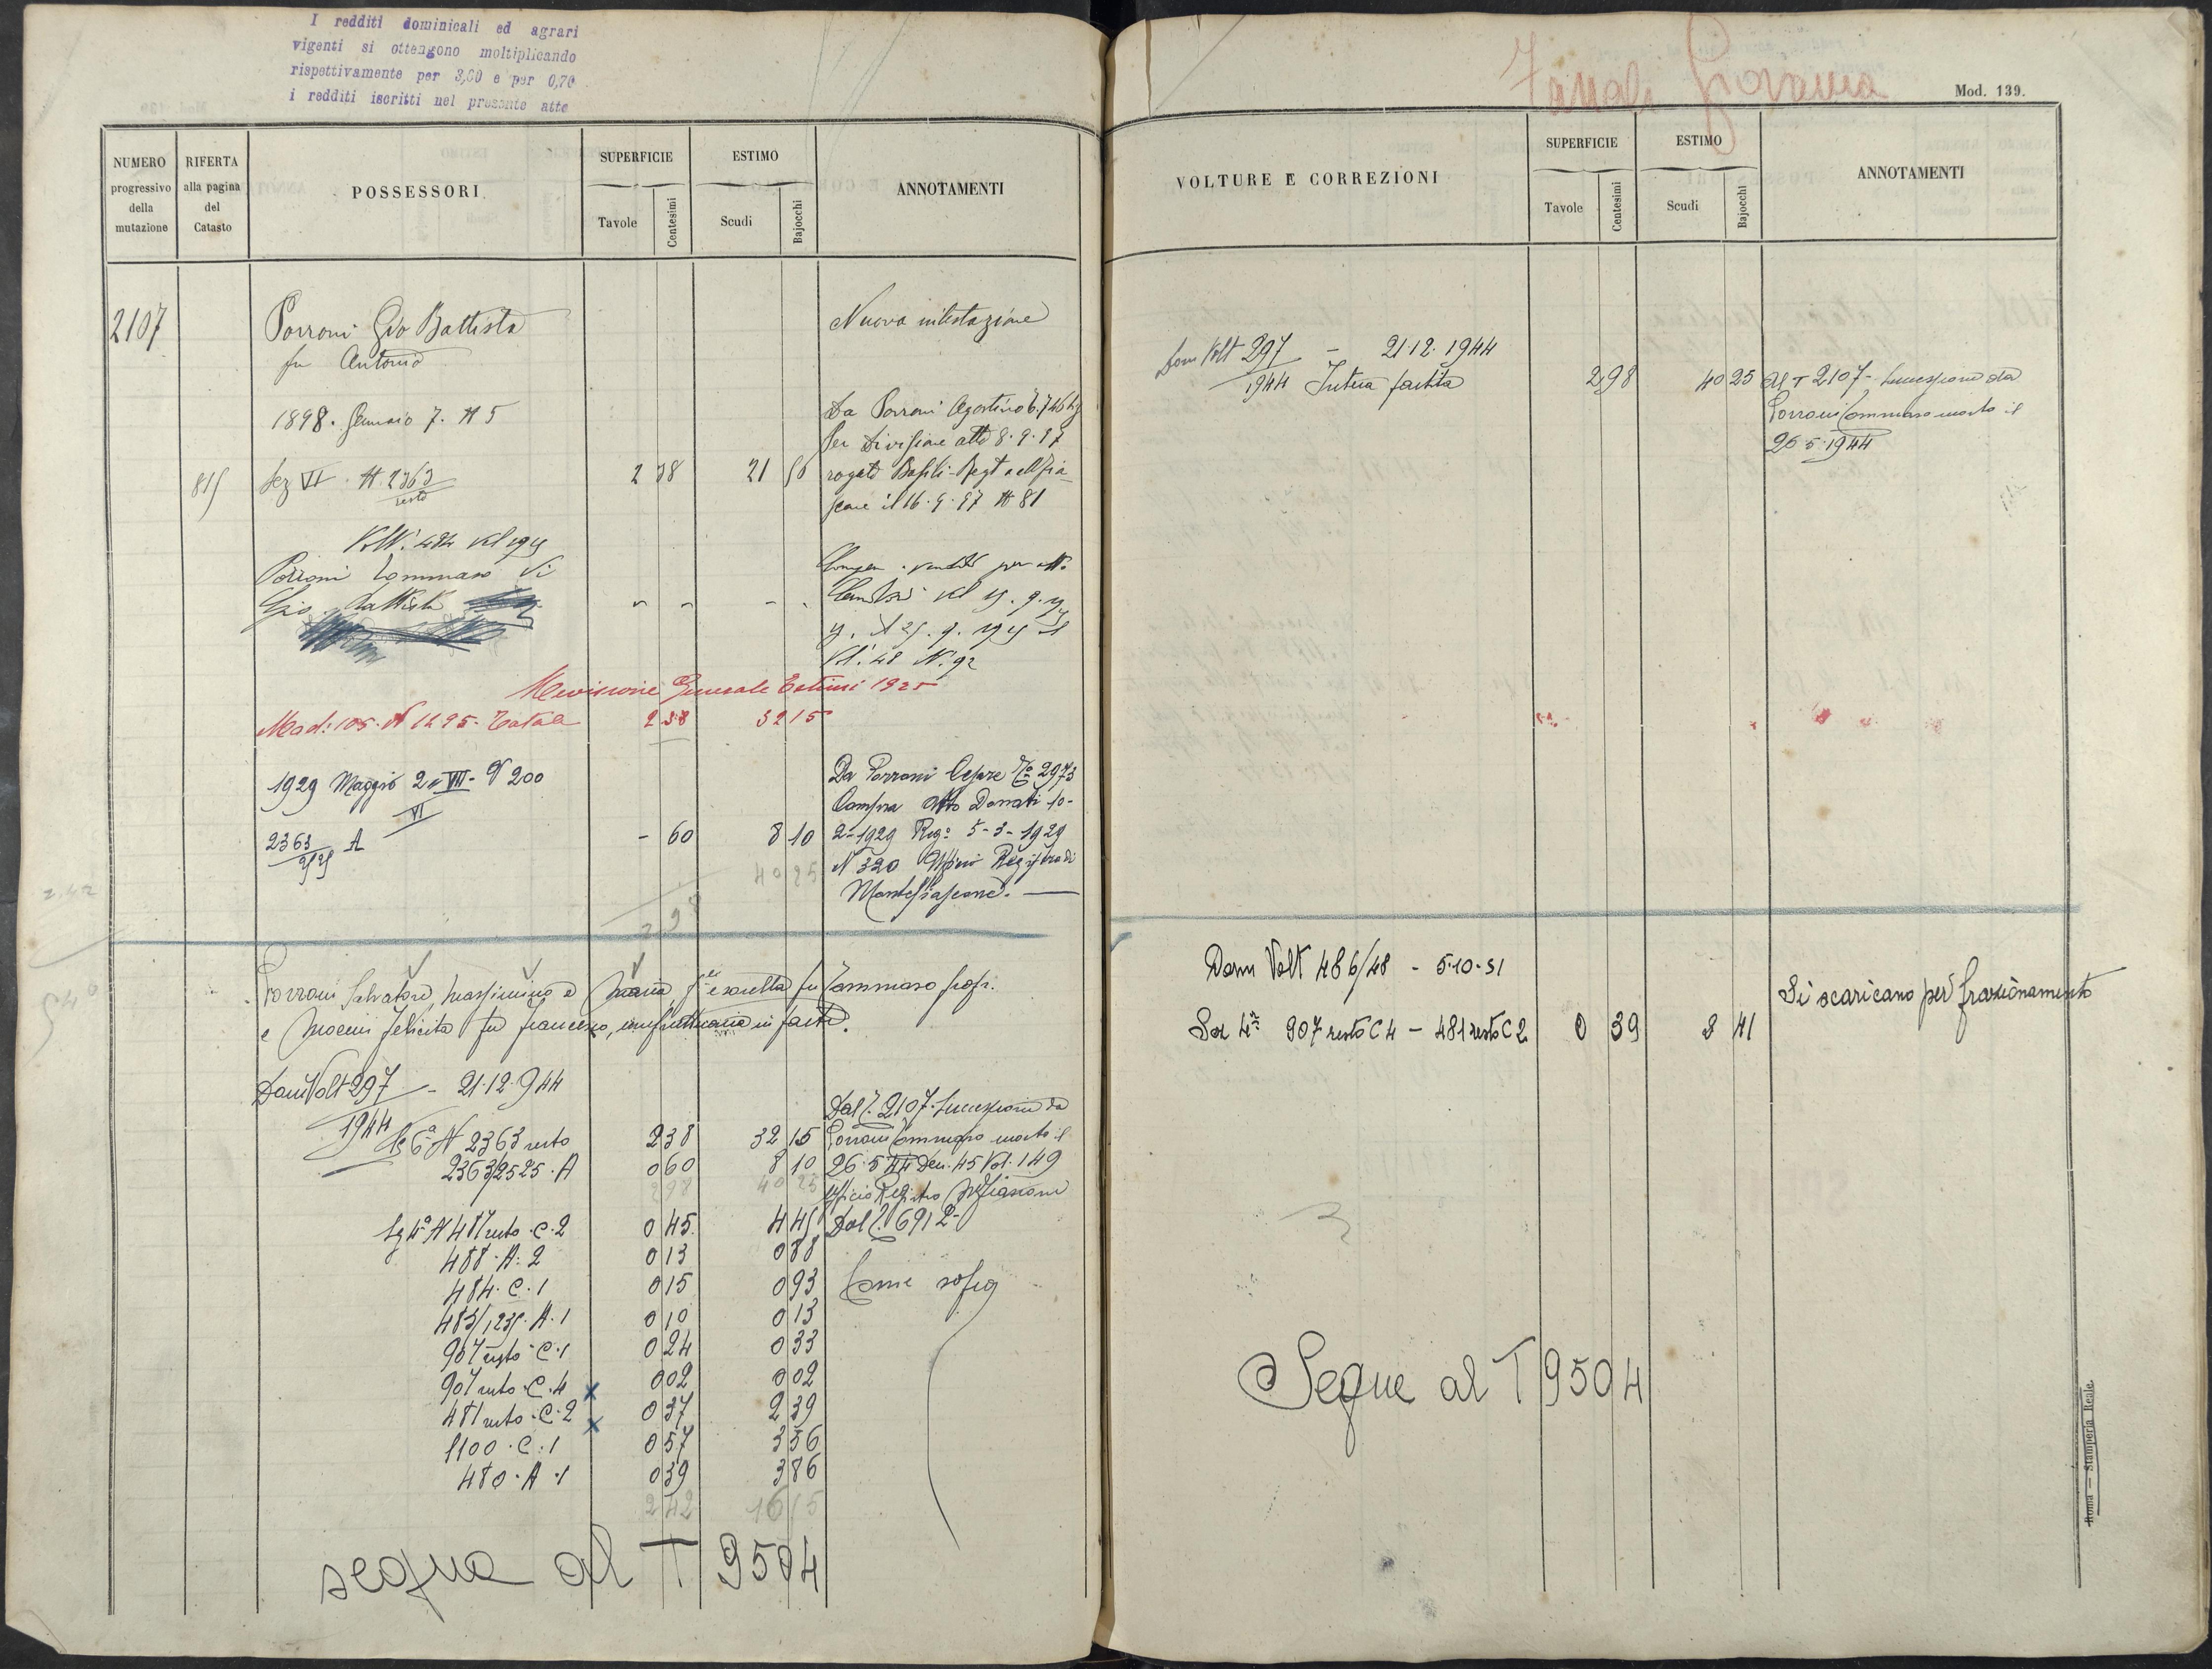 I redditi dominicali ed agrari
vigenti si ottengono moltiplicando
rispettivamente per 3,00 e per 0,70
i redditi iscritti nel presente atto
NUMERO progressivo della mutazione
RIFERTA alla pagina del Catasto
POSSESSORI
SUPERFICIE Tavole Centesimi
ESTIMO Scudi Bajocchi
ANNOTAMENTI
2107 Porroni Gio Battista Nuova intestazione
fu Antonio
1898. Gennaio 7. N 5 Da Porroni Agostino
Per Divisione atto 8.9.97
815 Sez VI N. 2363 2 38 21 rogato
resto il 16.9.97 N 81
Porroni Tommaso di
Gio. Battista
Revisione Generale Estimi 1925
Mod: 105. N 1295. Totale 2 38 32 15
1929 Maggio 200 Da Porroni Cesare 2973
VI Compra Atto Donati 10-
2363 A - 60 8 10 2-1929 Reg: 5-3-1929
2525
40 25 N 320 Ufficio Registro di
Montefiascone.
2 98
2.42
540
Porroni Salvatore, Massimino e Maria fu Tommaso propr.
e Felicita fu Francesco, usufruttuaria in parte.
Dom Volt 297 - 21.12.944
1944
Dal T. 2107. Successione da
Sez 6ª N 2363 resto 2 38 32 15 Porroni Tommaso morto il
2363/2525. A 0 60 8 10 26.5.44 Den. 45 Vol. 149
2 98 40 25 Ufficio Registro
Sez 4ª N 487 resto C.2 0 45 4 45 Dal T. 6912
488. A. 2 0 13 0 88
484. C. 1 0 15 0 93 Come sopra
483/1235. A. 1 0 10 0 13
907 resto C. 1 0 24 0 33
907 resto C. 4 x 0 02 0 02
481 resto C. 2 x 0 37 2 39
1100. C. 1 0 57 3 56
480. A. 1 0 39 3 86
2 42 16
segue al T 9504
Giovanna
Mod. 139.
VOLTURE E CORREZIONI
SUPERFICIE Tavole Centesimi
ESTIMO Scudi Bajocchi
ANNOTAMENTI
Dom Volt 297 - 21.12.1944
1944 Intera partita 2 98 40 25 Al T 2107 - Successione da
Porroni Tommaso morto il
26.5.1944
Dom Volt 486/48 - 5.10.51
Si scaricano per frazionamento
Sez 4ª 907 resto C 4 - 481 resto C 2 0 39 2 41
Segue al T 9504
Roma — Stamperia Reale.